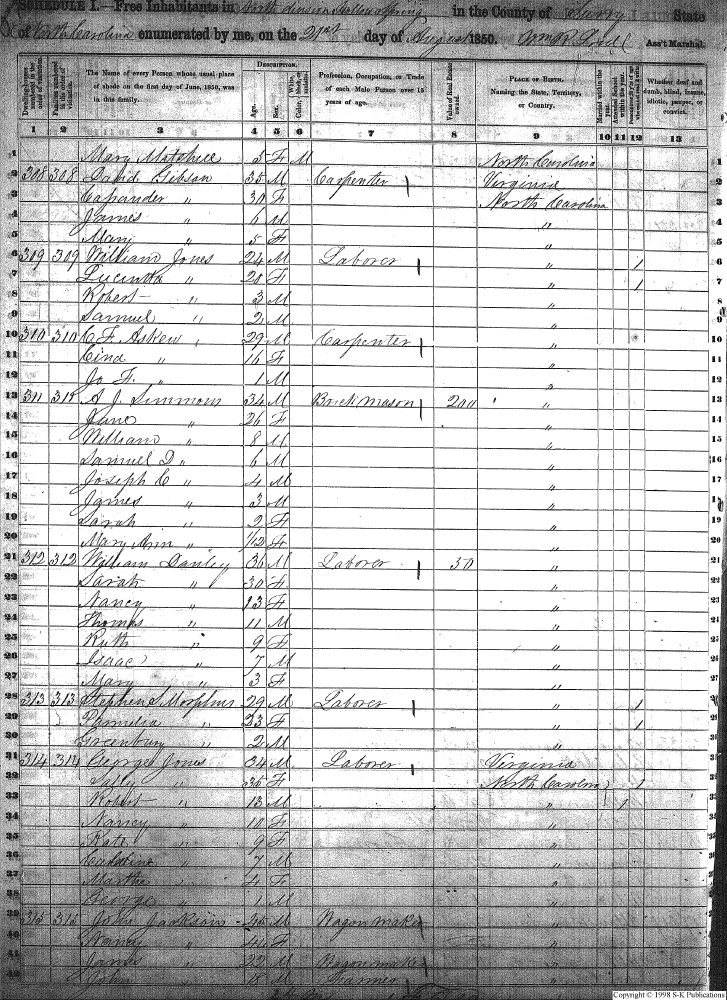 SCHEDULE I.—Free Inhabitants in North division Hollow Spring in the County of Surry State
of North Carolina enumerated by me, on the 21st day of August 1850. Wm R Ass't Marshal.
Dwelling-houses numbered in the order of visitation.
Families numbered in the order of visitation.
The Name of every Person whose usual place of abode on the first day of June, 1850, was in this family.
DESCRIPTION.
Age.
Sex.
White, black, or mulatto. Color,
Profession, Occupation, or Trade of each Male Person over 15 years of age.
Value of Real Estate owned.
PLACE OF BIRTH. Naming the State, Territory, or Country.
Married within the year.
Attended School within the year.
Whether deaf and dumb, blind, insane, idiotic, pauper, or convict.
1 2 3 4 5 6 7 8 9 10 11 12 13
1 Mary 5 F M North Carolina 1
2 308 308 David Gibson 35 M Carpenter Virginia 2
3 " 30 F North Carolina 3
4 James " 6 M " 4
5 Mary " 5 F " 5
6 309 309 William Jones 24 M Laborer " 1 6
7 Lucintha " 20 F " 1 7
8 Robert " 3 M " 8
9 Samuel " 2 M " 9
10 310 310 C. F. Askew 29 M Carpenter " 10
11 Cind " 16 F " 11
12 Jo F. " 1 M " 12
13 311 311 A J Simmons 34 M Brick mason 200 " 13
14 Jane " 26 F " 14
15 William " 8 M " 15
16 Samuel D " 6 M " 16
17 Joseph C " 4 M " 17
18 James " 3 M " 18
19 Sarah " 2 F " 19
20 Mary Ann " 1/12 F " 20
21 312 312 William Danley 36 M Laborer 50 " 21
22 Sarah " 30 F " 22
23 Nancy " 13 F " 23
24 Thomas " 11 M " 24
25 Ruth " 9 F " 25
26 Isaac " 7 M " 26
27 Mary " 3 F " 27
28 313 313 Stephen S Morphus 29 M Laborer " 1 28
29 Pamelia " 23 F " 1 29
30 Greenbury " 2 M " 30
31 314 314 George Jones 34 M Laborer Virginia 31
32 Sally " 35 F North Carolina 1 32
33 Robert " 13 M " 1 33
34 Nancy " 10 F " 34
35 Kate " 9 F " 35
36 " 7 M " 36
37 Martha " 4 F " 37
38 George " 1 M " 38
39 315 315 John Jackson 45 M Wagon maker " 39
40 Nancy " 44 F " 40
41 James " 22 M Wagon maker " 41
42 John " 18 M Farmer " 42
Copyright © 1998 S-K Publications